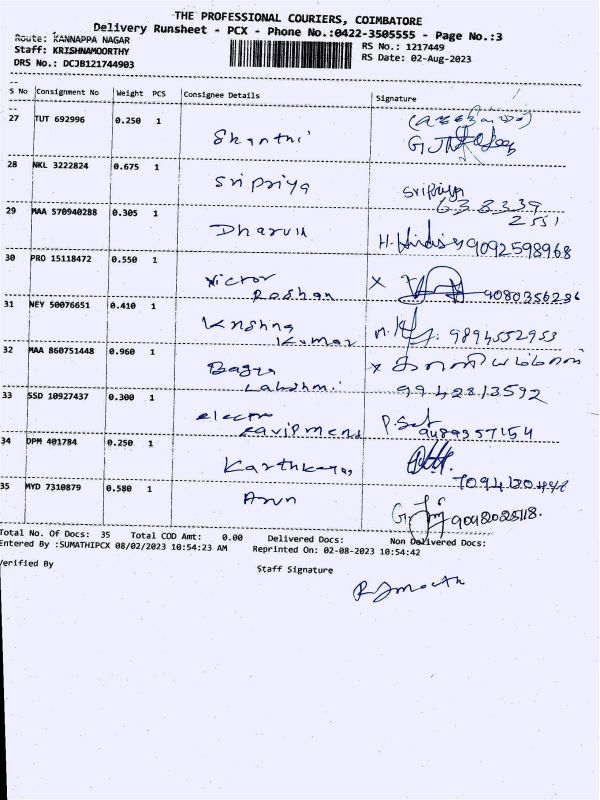 THE PROFESSIONAL COURIERS, COIMBATORE
Delivery Runsheet - PCX - Phone No.:0422-3505555 - Page No.:3
Route: KANNAPPA NAGAR RS No.: 1217449
Staff: KRISHNAMOORTHY RS Date: 02-Aug-2023
DRS No.: DCJB121744903
S No Consignment No Weight PCS Consignee Details Signature
27 TUT 692996 0.250 1 Shanthi
28 NKL 3222824 0.675 1 Sripriya Sripriya
638339
2551
29 MAA 570940288 0.305 1 Dharun H. 9092598968
30 PRO 15118472 0.550 1 Victor Roshan X 9080356236
31 NEY 50076651 0.410 1 Krishna Kumar 9894552953
32 MAA 860751448 0.960 1 Bagya Lakshmi X
9942813592
33 SSD 10927437 0.300 1 electro P.
9489357154
34 DPM 401784 0.250 1
35 MYD 7310879 0.580 1 Arun
Total No. Of Docs: 35 Total COD Amt: 0.00 Delivered Docs: Non Delivered Docs:
Entered By :SUMATHIPCX 08/02/2023 10:54:23 AM Reprinted On: 02-08-2023 10:54:42
Verified By Staff Signature